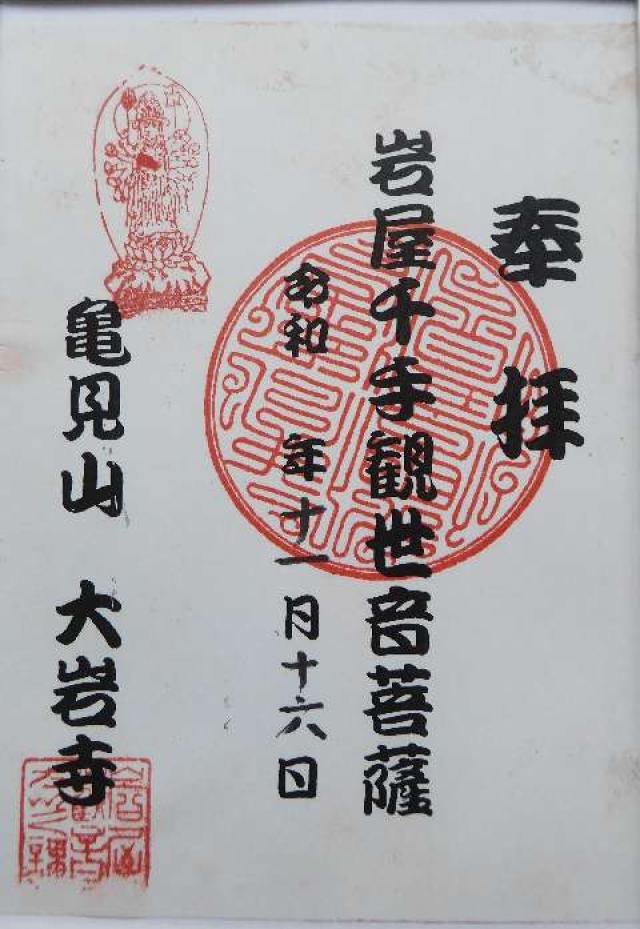 奉拝
岩屋千手観世音菩薩
令和 年十一月十六日
亀見山 大岩寺